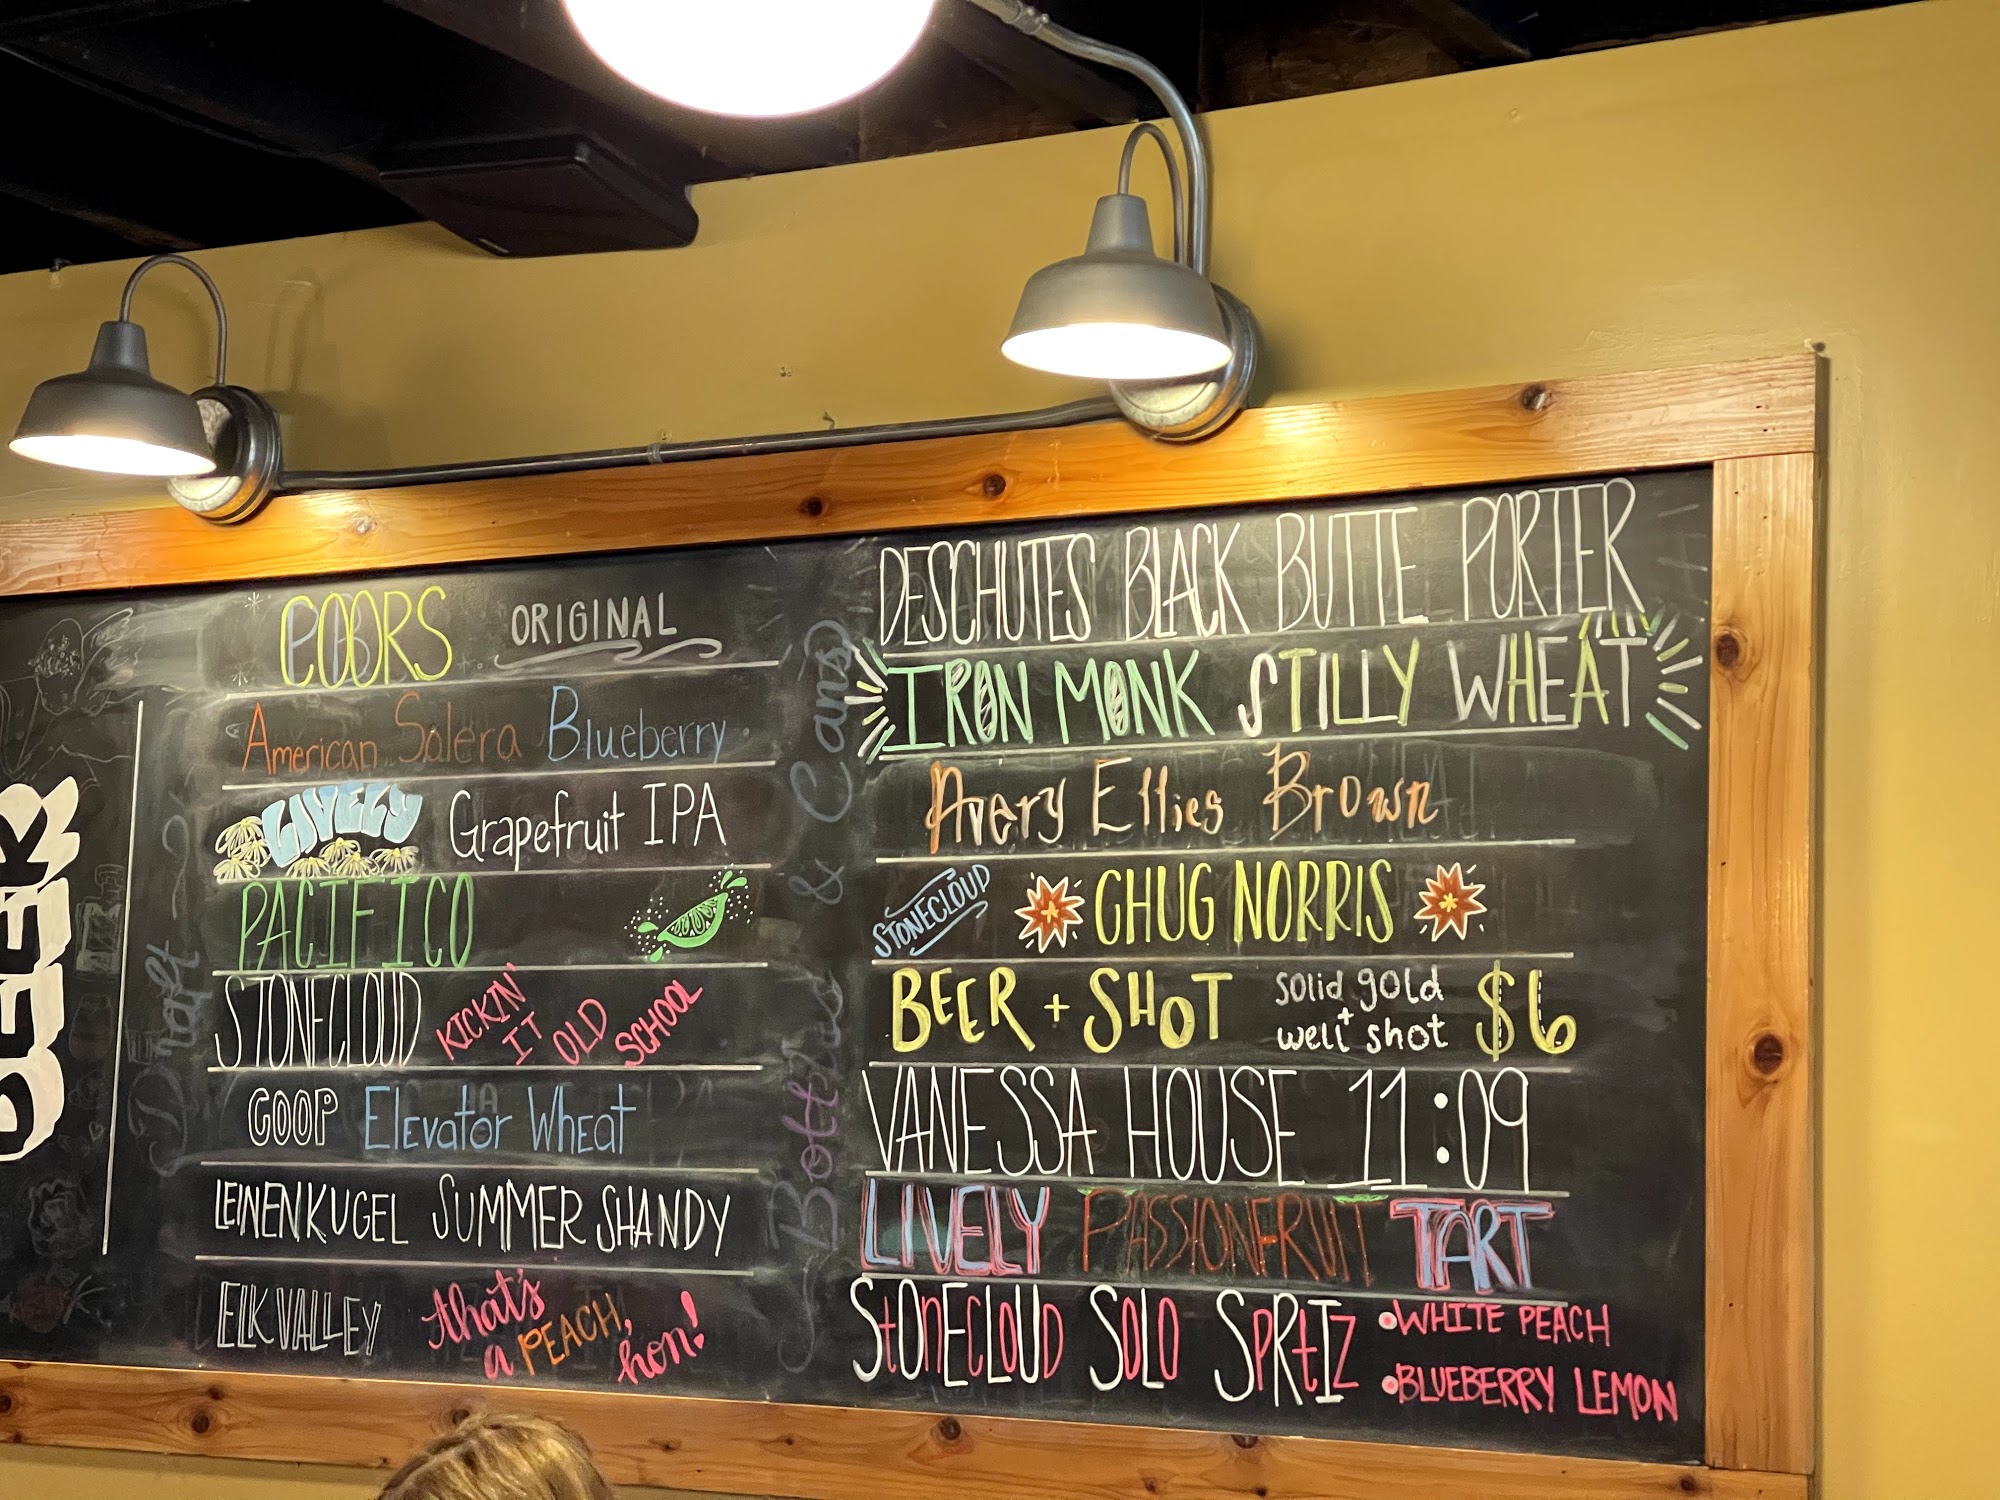 BEER
Draft
COORS ORIGINAL
American Solera Blueberry
LIVELY Grapefruit IPA
PACIFICO
STONECLOUD KICKIN' IT OLD SCHOOL
COOP Elevator Wheat
LEINENKUGEL SUMMER SHANDY
ELK VALLEY that's a PEACH, hon!
Bottles & Cans
DESCHUTES BLACK BUTTE PORTER
IRON MONK STILLY WHEAT
Avery Ellies Brown
STONECLOUD CHUG NORRIS
BEER + SHOT solid gold + well shot $6
VANESSA HOUSE 11:09
LIVELY PASSIONFRUIT TART
STONECLOUD SOLO SPRTIZ
WHITE PEACH
BLUEBERRY LEMON